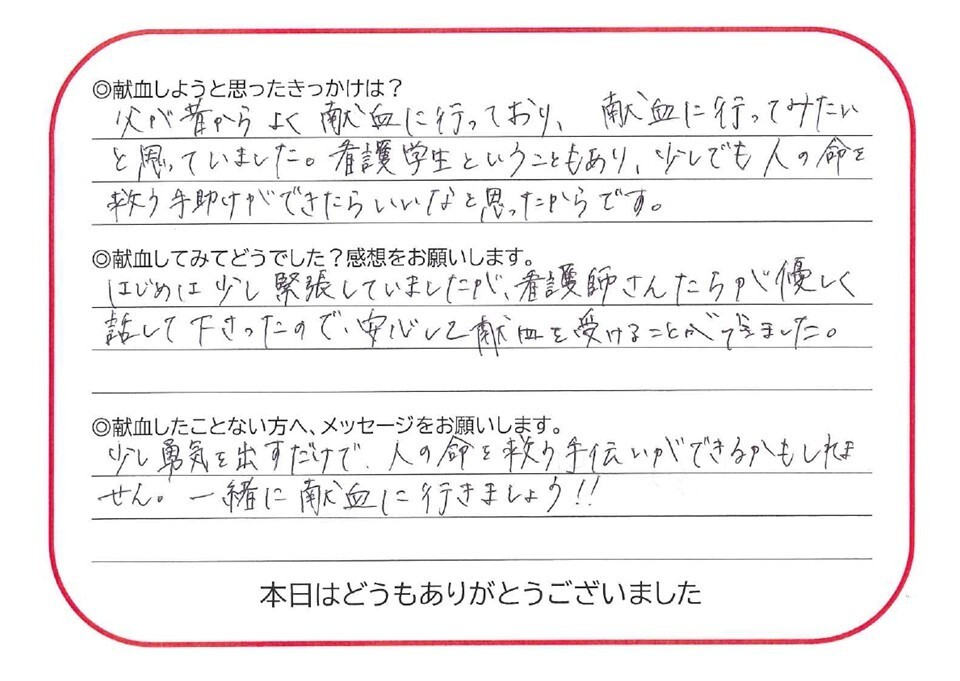 ◎献血しようと思ったきっかけは？
父が昔からよく献血に行っており、献血に行ってみたい
と思っていました。看護学生ということもあり、少しでも人の命を
救う手助けができたらいいなと思ったからです。
◎献血してみてどうでした？感想をお願いします。
はじめは少し緊張していましたが、看護師さんたちが優しく
話して下さったので、安心して献血を受けることができました。
◎献血したことない方へ、メッセージをお願いします。
少し勇気を出すだけで、人の命を救う手伝いができるかもしれま
せん。一緒に献血に行きましょう!!
本日はどうもありがとうございました